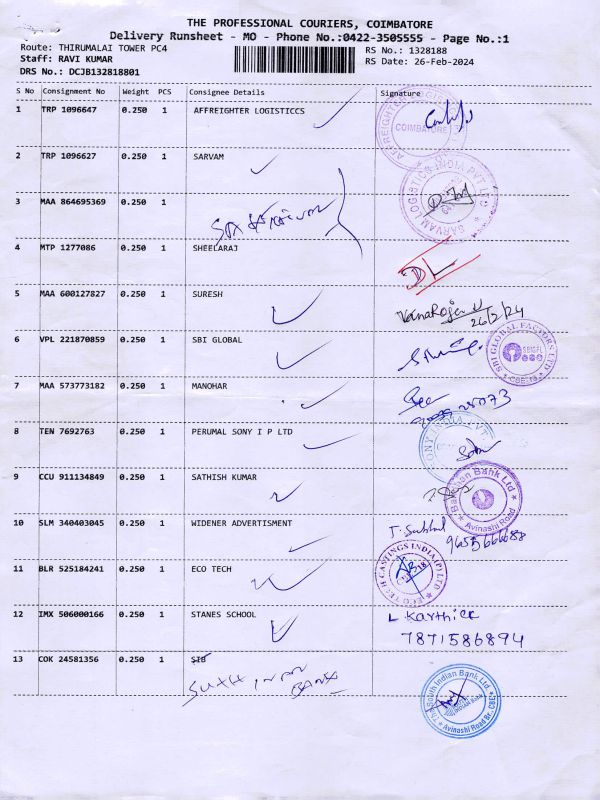 THE PROFESSIONAL COURIERS, COIMBATORE
Delivery Runsheet - MO - Phone No.:0422-3505555 - Page No.:1
Route: THIRUMALAI TOWER PC4
RS No.: 1328188
Staff: RAVI KUMAR
RS Date: 26-Feb-2024
DRS No.: DCJB132818801
S No Consignment No Weight PCS Consignee Details Signature
1 TRP 1096647 0.250 1 AFFREIGHTER LOGISTICCS
COIMBATORE
2 TRP 1096627 0.250 1 SARVAM
SARVAM LOGISTICS INDIA PVT LTD
3 MAA 864695369 0.250 1
4 MTP 1277086 0.250 1 SHEELARAJ
DL
5 MAA 600127827 0.250 1 SURESH
26/2/24
6 VPL 221870859 0.250 1 SBI GLOBAL
SBI GLOBAL FACTORS LTD
CBE-18
7 MAA 573773182 0.250 1 MANOHAR
8 TEN 7692763 0.250 1 PERUMAL SONY I P LTD
9 CCU 911134849 0.250 1 SATHISH KUMAR
Bank Ltd
Avinashi Road
10 SLM 340403045 0.250 1 WIDENER ADVERTISMENT
11 BLR 525184241 0.250 1 ECO TECH
ECOTECH CASTINGS INDIA (P) LTD
12 IMX 506000166 0.250 1 STANES SCHOOL
L Karthick
7871586894
13 COK 24581356 0.250 1 SIB
The South Indian Bank Ltd.
Avinashi Road Br. CBE